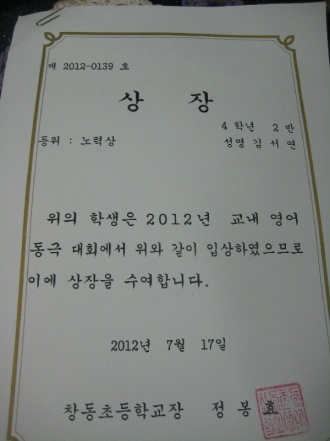 제 2012-0139 호
상 장
4 학년 2 반
등위 : 노력상 성명 김 서 연
위의 학생은 2012년 교내 영어
동극 대회에서 위와 같이 입상하였으므로
이에 상장을 수여합니다.
2012년 7월 17일
창동초등학교장 정 봉 효